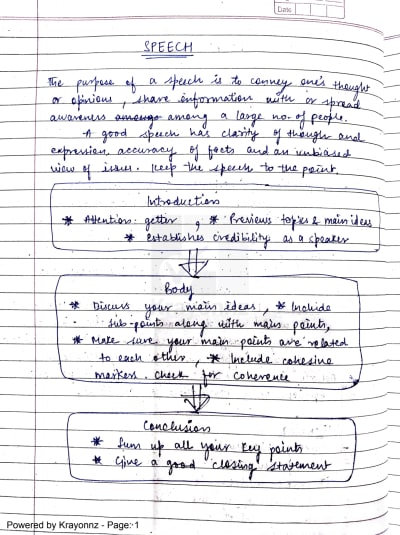 Date
SPEECH
The purpose of a speech is to convey one's thought
or opinions, share information with or spread
awareness among among a large no. of people.
A good speech has clarity of thought and
expression, accuracy of facts and an unbiased
view of issues. Keep the speech to the point.
Introduction
* Attention getter, * Previews topics & main ideas
* Establishes credibility as a speaker
Body
* Discuss your main ideas, * Include
sub-points along with main points,
* Make sure your main points are related
to each other, * Include cohesive
markers. Check for coherence
Conclusion
* Sum up all your key points
* Give a good closing statement
Powered by Krayonnz - Page: 1